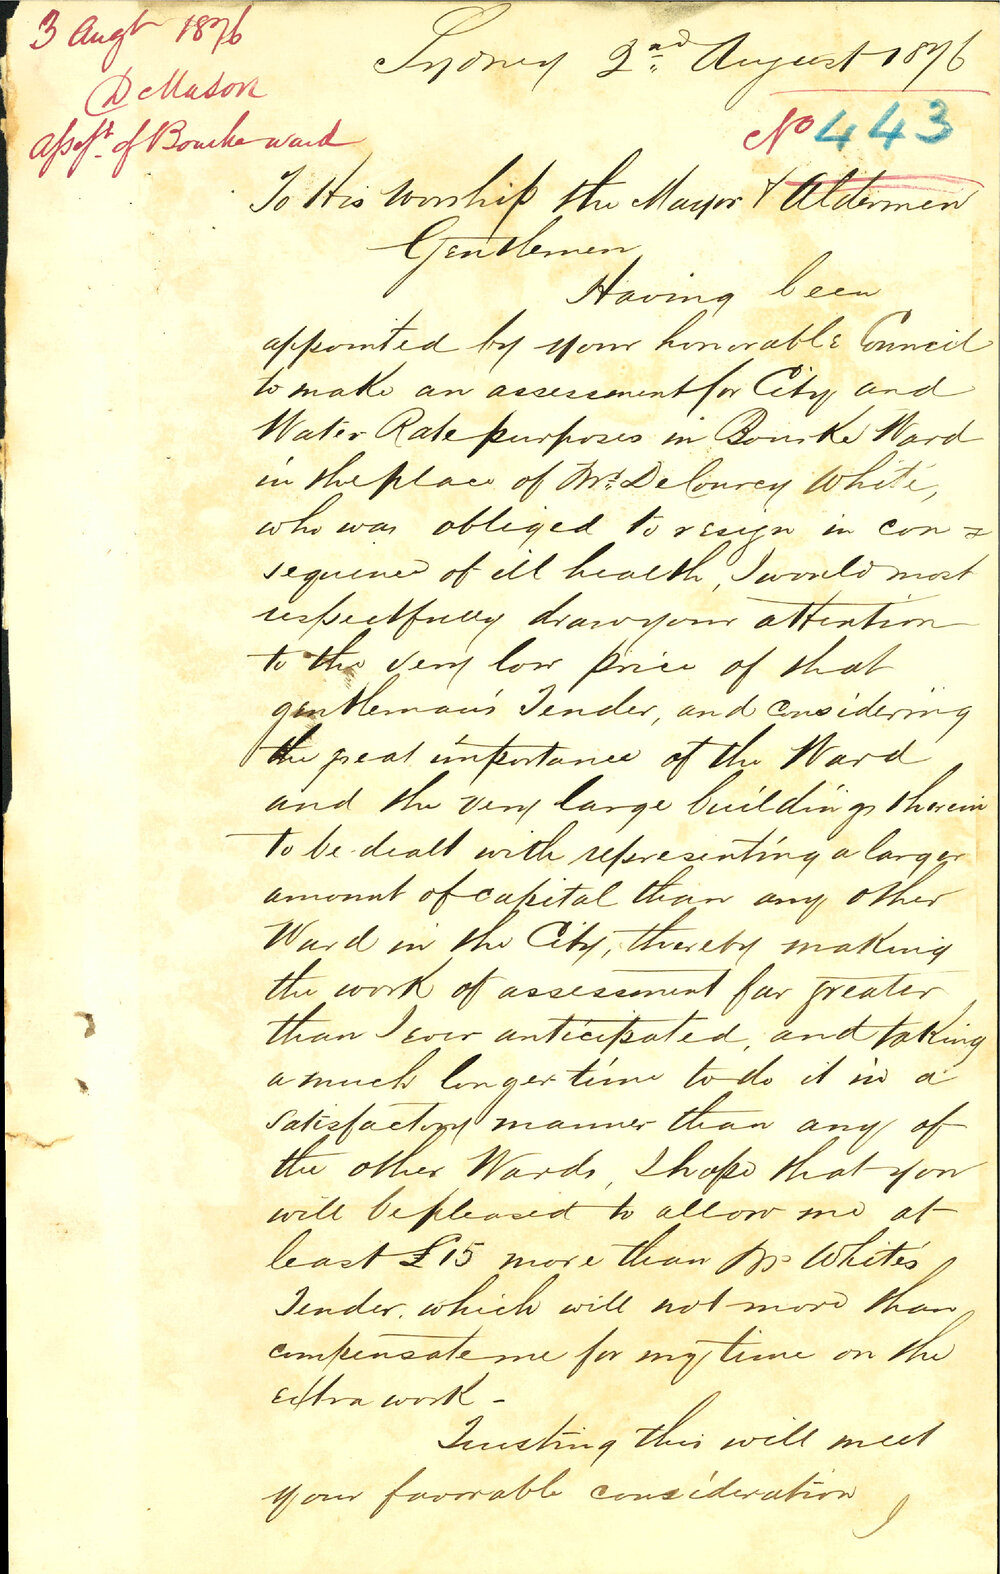 3 Augt 1876
D Mason
assest. of Bourke ward
Sydney 2nd August 1876
No 443
To His Worship the Mayor & Aldermen
Gentlemen
Having been
appointed by your honorable Council
to make an assessment for City and
Water Rate purposes in Bourke Ward
in the place of Mr. DeCourcy White,
who was obliged to resign in con=
sequence of ill health, I would most
respectfully draw your attention
to the very low price of that
gentleman's Tender, and considering
the great importance of the Ward
and the very large buildings therein
to be dealt with representing a larger
amount of capital than any other
Ward in the City, thereby making
the work of assessment far greater
than I ever anticipated, and taking
a much longer time to do it in a
satisfactory manner than any of
the other Wards, I hope that you
will be pleased to allow me at
least £15 more than Mr White's
Tender, which will not more than
compensate me for my time on the
extra work -
Trusting this will meet
your favorable consideration
I